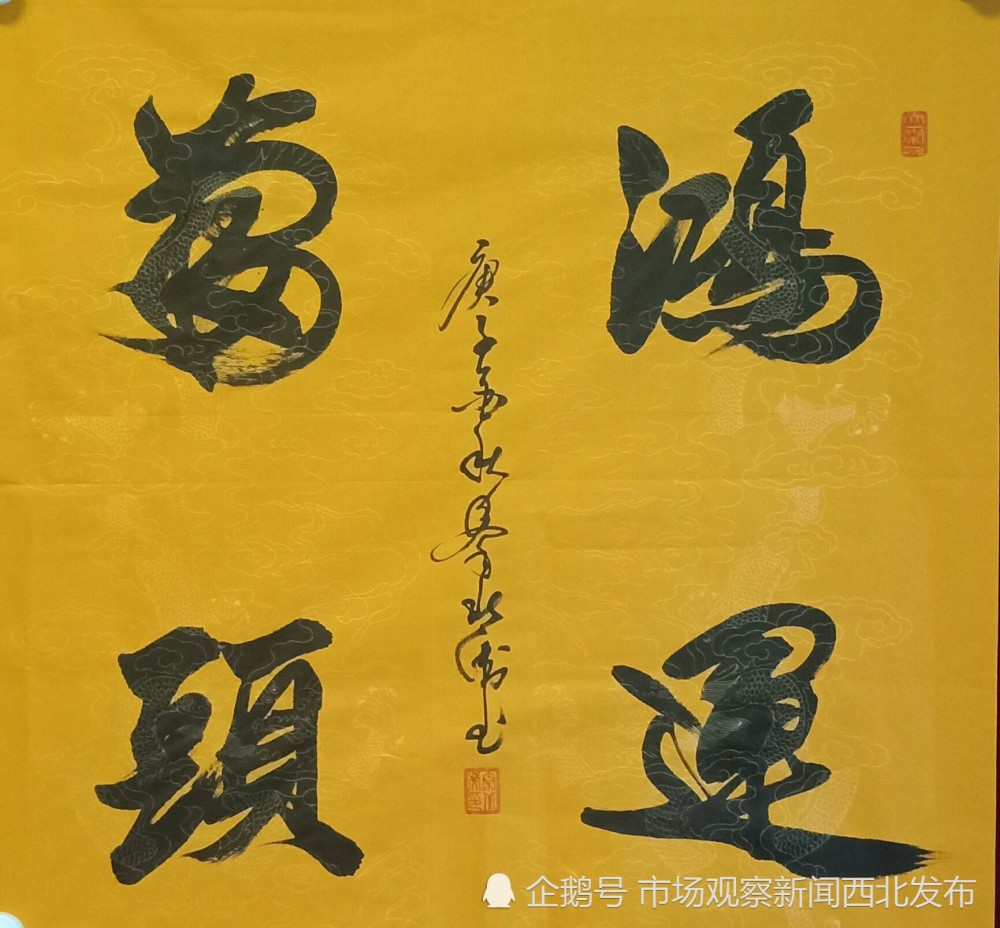 鴻運
當頭
庚子金秋
企鹅号 市场观察新闻西北发布